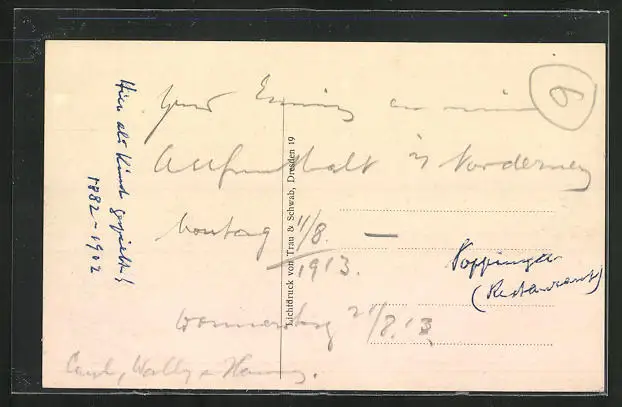 Hier als Kind gespielt!
1882-1902
6
Zur Erinnerung an meinen
Aufenthalt in Norderney
Montag 11/8. —
1913.
Donnerstag 21/8.13.
Wally + Hanny.
Lichtdruck von Trau & Schwab, Dresden 19
(Restaurant)